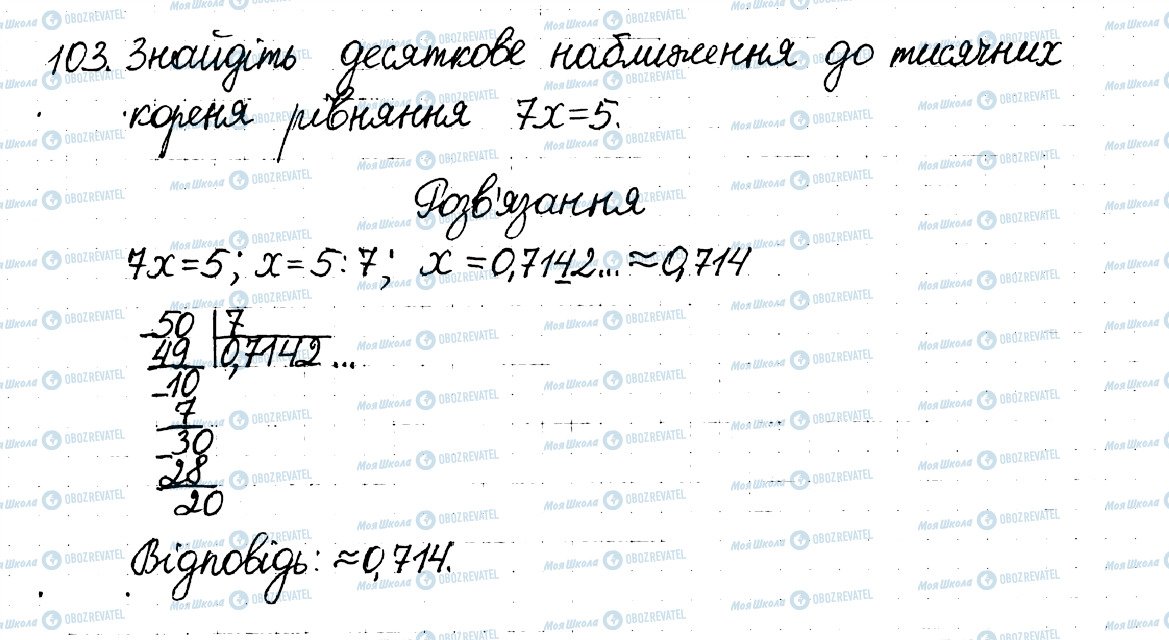 103. Знайдіть десяткове наближення до тисячних
кореня рівняння 7x=5.
Розв'язання
7x=5; x=5:7; x=0,7142...≈0,714
-50 | 7
49 | 0,7142...
-10
7
-30
28
20
Відповідь: ≈0,714.